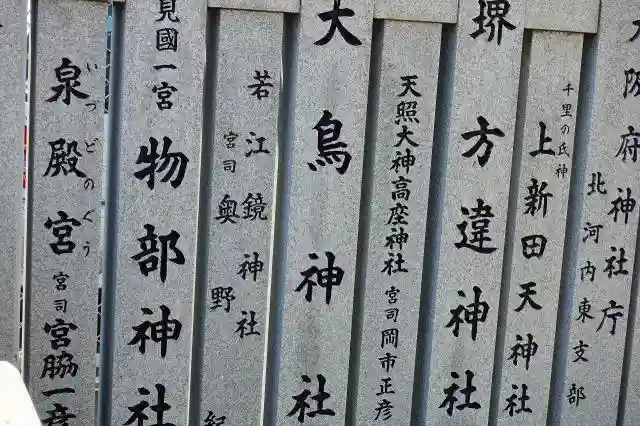 大阪府神社庁
北河内東支部
千里の氏神
上新田天神社
堺
方違神社
天照大神高座神社
宮司 岡市正彦
大鳥神社
若江鏡神社
宮司 奥野
見國一宮
物部神社
いづどのぐう
泉殿宮
宮司 宮脇一彦